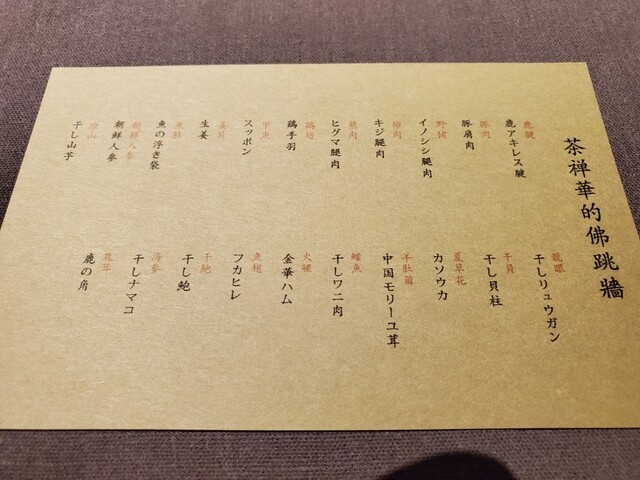 茶禅華的佛跳牆
鹿腱
鹿アキレス腱
豚肉
豚肩肉
野猪
イノシシ腿肉
雉肉
キジ腿肉
熊肉
ヒグマ腿肉
鶏翅
鶏手羽
甲魚
スッポン
姜片
生姜
魚肚
魚の浮き袋
朝鮮人参
朝鮮人参
淮山
干し山芋
龍眼
干しリュウガン
干貝
干し貝柱
夏草花
カソウカ
羊肚菌
中国モリーユ茸
鱷魚
干しワニ肉
火腿
金華ハム
魚翅
フカヒレ
干鮑
干し鮑
海参
干しナマコ
鹿茸
鹿の角